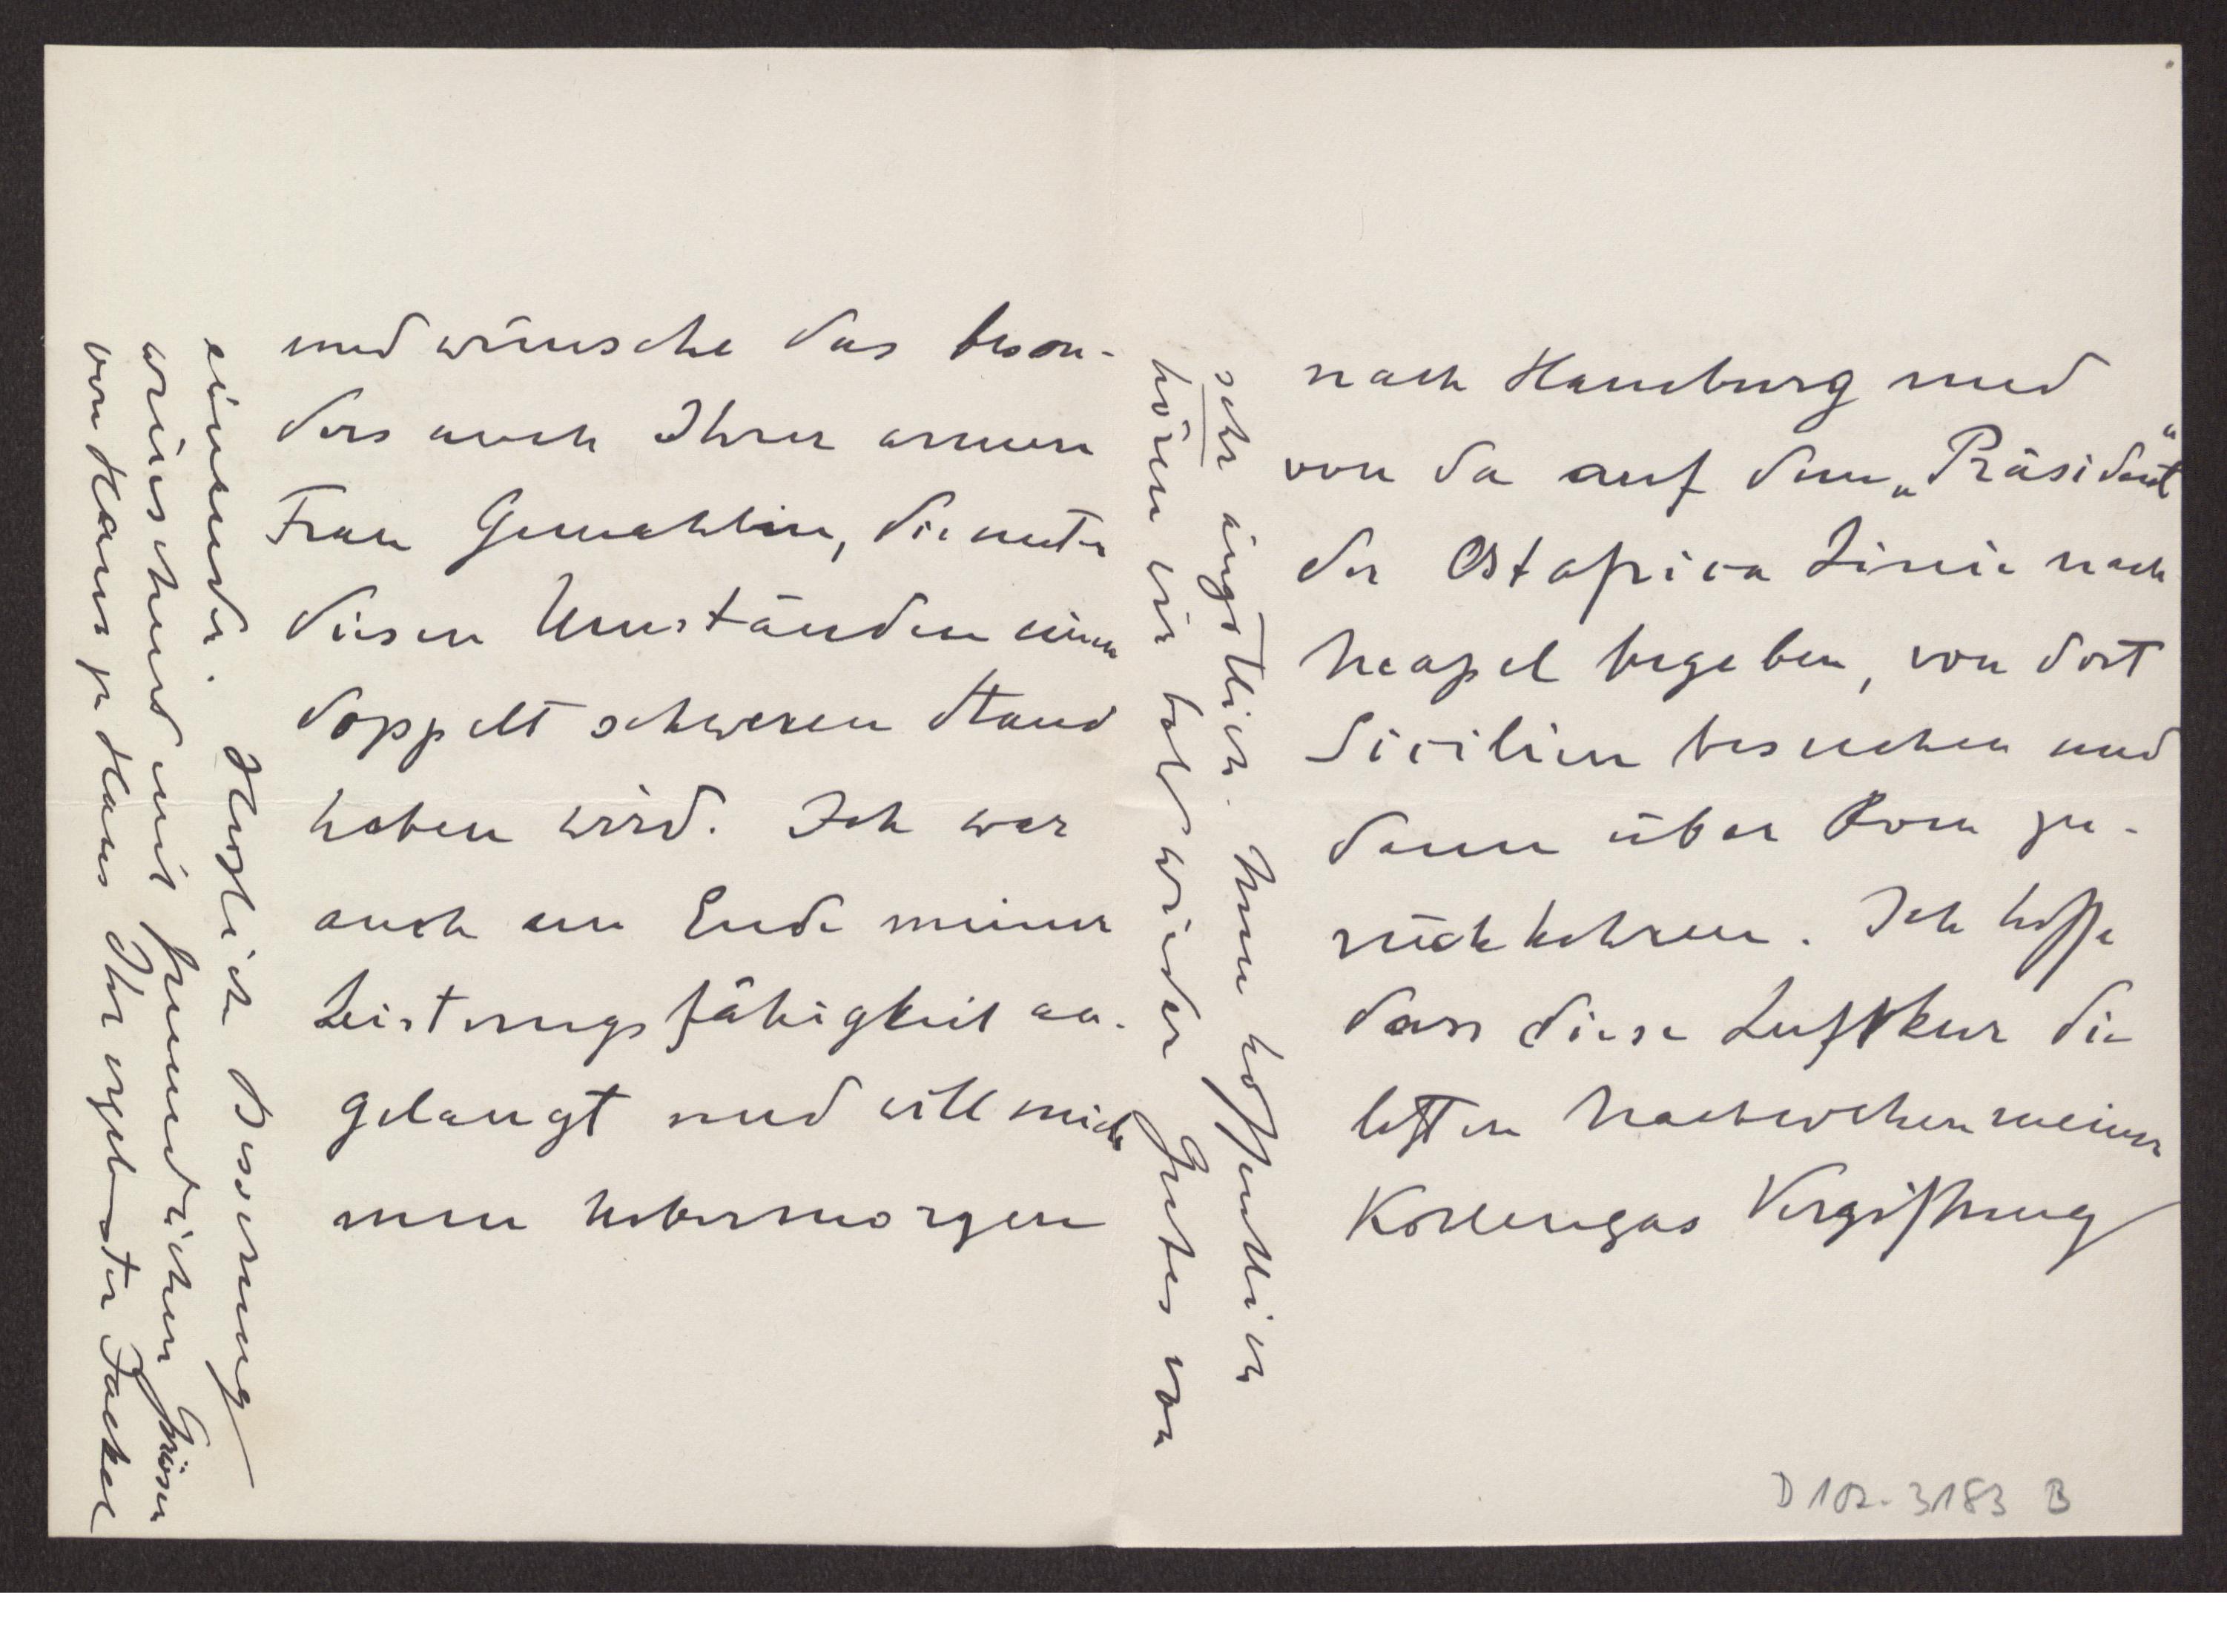 und wünsche das beson-
ders auch Ihrer armen
Frau Gemahlin, die unter
diesen Umständen einen
doppelt schweren Stand
haben wird. Ich war
auch am Ende meiner
Leistungsfähigkeit an-
gelangt und will mich
nun Uebermorgen
nach Hamburg und
von da auf dem „Präsident“
der Ostafrica Linie nach
Neapel begeben, von dort
Sicilien besuchen und
dann über Rom zu-
rückkehren. Ich hoffe
dass diese Luftkur die
letzten Nachwehen meiner
Kohlengas Vergiftung
sehr ängstlich. Nun hoffentlich
hören wir bald wieder Gutes von
einander. Herzliche Besserung
wünschend mit freundlichen Grüssen
von Haus zu Haus Ihr ergebenster Jaekel
D 102-3183 B